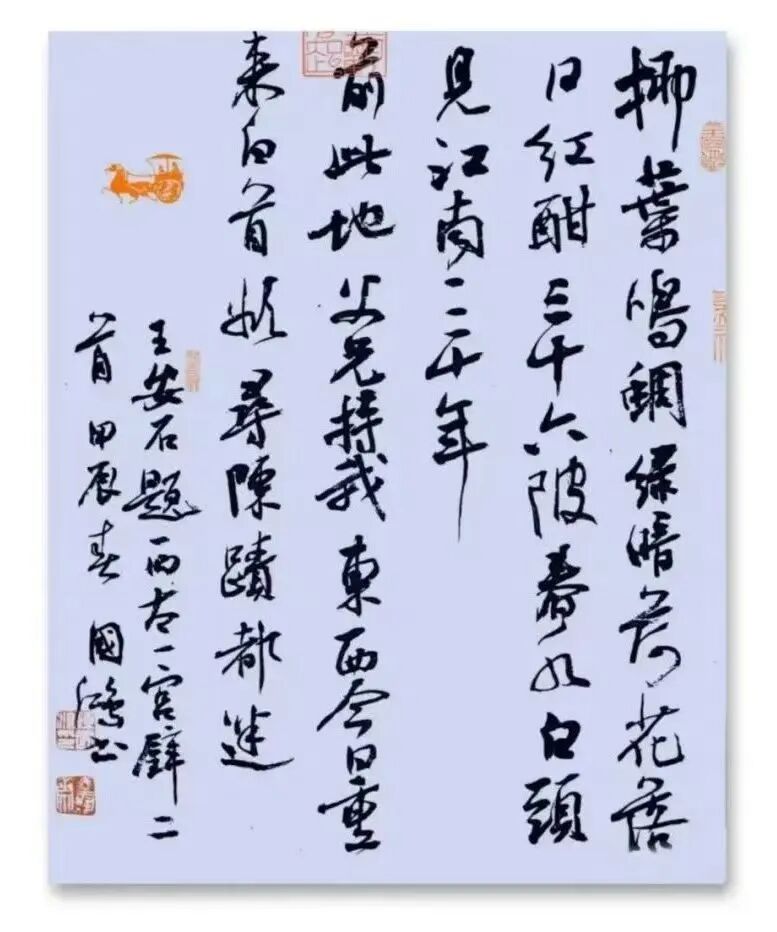 柳葉鳴蜩綠暗荷花落
日紅酣三十六陂春水白頭
見江南三十年
前此地父兄持我東西今日重
來白首欲尋陳蹟都迷
王安石題西太一宮壁二
首甲辰春國鴻書